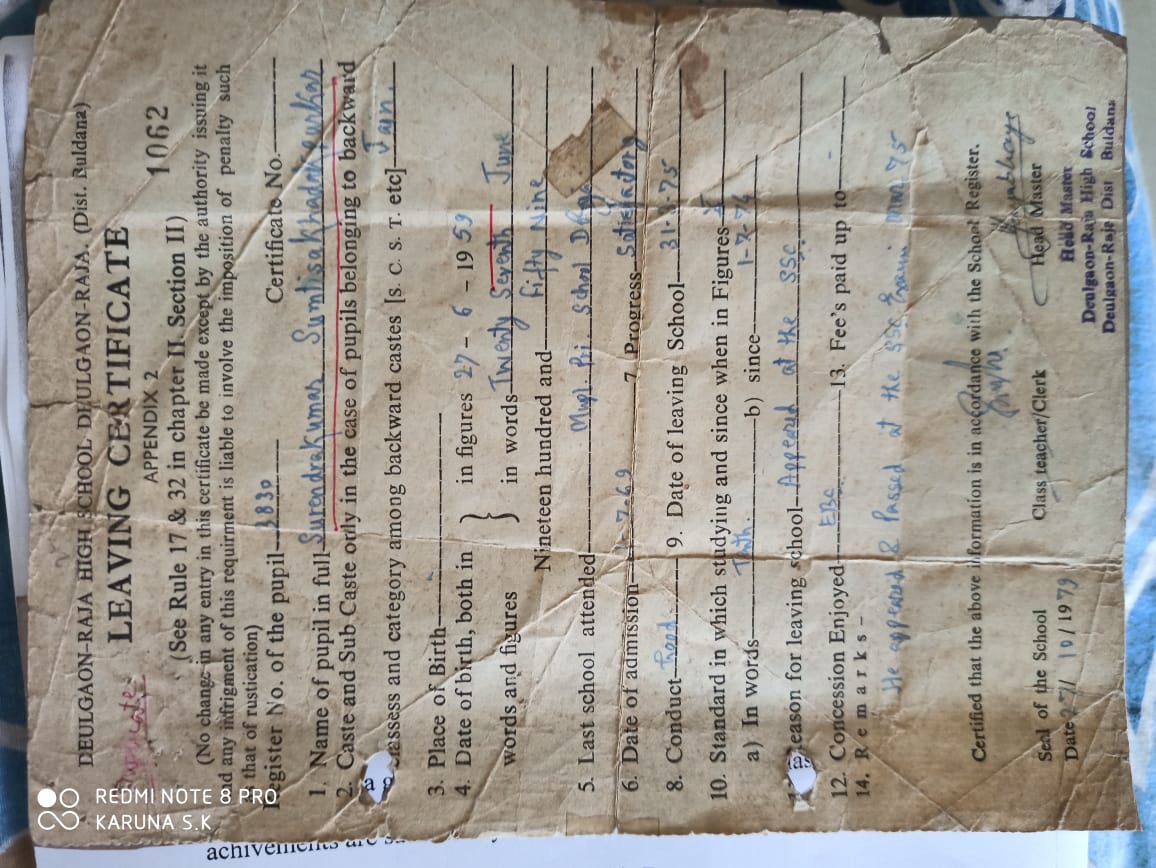 DEULGAON-RAJA HIGH SCHOOL DEULGAON-RAJA. (Dist. Buldana)
Duplicate
LEAVING CERTIFICATE
APPENDIX 2
1062
(See Rule 17 & 32 in chapter II. Section II)
(No change in any entry in this certificate be made except by the authority issuing it
nd any infrigment of this requirment is liable to involve the imposition of penalty such
that of rustication)
Register No. of the pupil 3830 Certificate No.
1. Name of pupil in full Surendrakumar Sumtisa
2. Caste and Sub Caste only in the case of pupils belonging to backward
assess and category among backward castes [s. C. S. T. etc] Jain.
3. Place of Birth
4. Date of birth, both in } in figures 27 - 6 - 1959
words and figures in words Twenty Seventh June
Nineteen hundred and Fifty Nine
5. Last school attended Mupl. Pri School D
6. Date of admission 1-7-69 7. Progress Satisfactory
8. Conduct Good 9. Date of leaving School 31-5-75
10. Standard in which studying and since when in Figures X
a) In words Tenth. b) since 1-7-74
eason for leaving school Appeared at the SSC.
12. Concession Enjoyed EBC 13. Fee's paid up to -
14. Remarks -
He appeared & Passed at the SSC Exam in 75
Certified that the above information is in accordance with the School Register.
Seal of the School Class teacher/Clerk Head Master
Date 27/ 10/1979
Head Master
Deulgaon-Raja High School
Deulgaon-Raja Dist Buldana
REDMI NOTE 8 PRO
KARUNA S.K